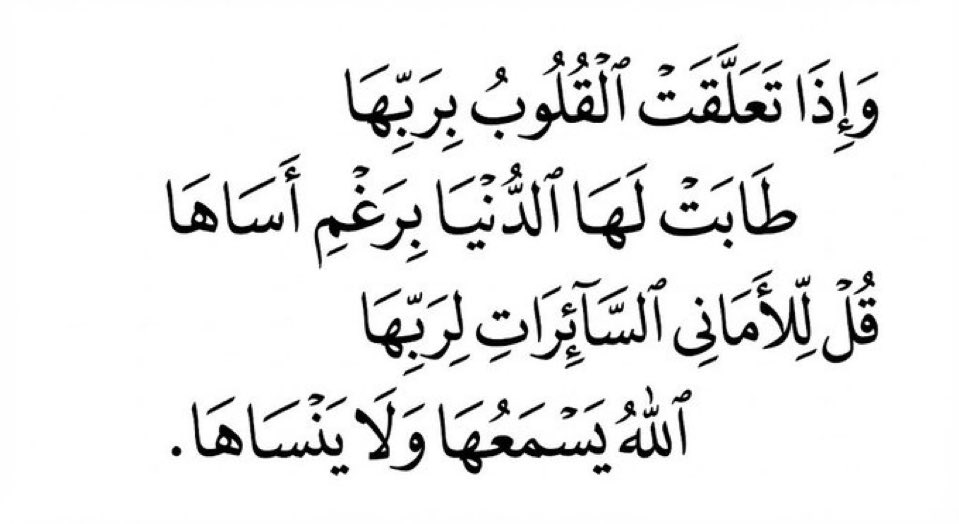 وَإِذَا تَعَلَّقَتْ ٱلْقُلُوبُ بِرَبِّهَا
طَابَتْ لَهَا ٱلدُّنْيَا بِرَغْمِ أَسَاهَا
قُلْ لِّلأَمَانِى ٱلسَّآئِرَاتِ لِرَبِّهَا
ٱللهُ يَسْمَعُهَا وَلَا يَنْسَاهَا.